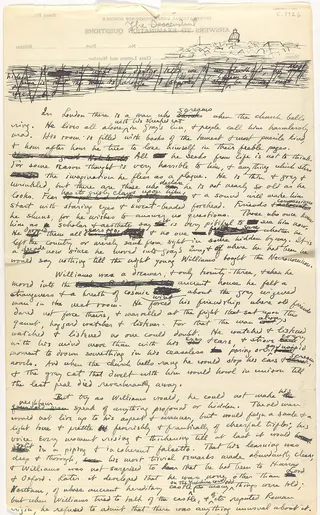 The Descendant
c. 1926
ANSWERS TO EXAMINATION QUESTIONS
In London there is a man who screams when the church bells
ring. He lives all alone with his streaked cat in Gray's Inn, & people call him harmlessly
mad. His room is filled with books of the tamest & most puerile kind,
& hour after hour he tries to lose himself in their feeble pages.
All he seeks from life is not to think.
For some reason thought is very horrible to him, & anything which stirs
the imagination he flees as a plague. He is very thin & grey &
wrinkled, but there are those who declare he is not nearly so old as he
looks. Fear has its grisly claws upon him, & a sound will make him
start with staring eyes & sweat-beaded forehead. Friends &
he shuns, for he wishes to answer no questions. Those who once knew
him as scholar & aesthete say it is very pitiful to see him now.
He dropped them all
left the country or merely sank from sight in some hidden byway. It is
now since he moved into Gray's Inn, & of where he had been he
would say nothing till the night young Williams bought the Necronomicon.
Williams was a dreamer, & only twenty-three, & when he
moved into the ancient house he felt a
strangeness & a breath of cosmic wind about the grey wizened
man in the next room. He forced his friendship where old friends
dared not force theirs, & marvelled at the fright that sat upon this
gaunt, haggard watcher & listener. For that the man always
watched & listened no one could doubt. He watched & listened
with his mind more than with his eyes & ears, & strove every
moment to drown something in his ceaseless poring over gay, insipid
novels. And when the church bells rang he would stop his ears & scream,
& the grey cat that dwelt with him would howl in unison till
the last peal died reverberantly away.
But try as Williams would, he could not make his
neighbour speak of anything profound or hidden. The old man
would not live up to his aspect & manner, but would feign a smile & a
light tone & prattle feverishly & frantically of cheerful trifles; his
voice every moment rising & thickening till at last it would
split in a piping & incoherent falsetto. That his learning was
deep & thorough, his most trivial remarks made abundantly clear;
& Williams was not surprised to hear that he had been to Harrow
& Oxford. Later it developed that he was none other than Lord
Northam, of whose ancient hereditary castle on the Yorkshire coast so many odd things were told;
but when Williams tried to talk of the castle, & of its reputed Roman
origin, he refused to admit that there was anything unusual about it.